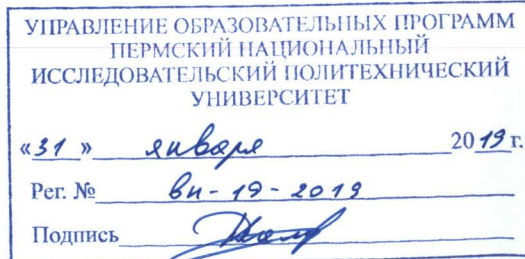 УПРАВЛЕНИЕ ОБРАЗОВАТЕЛЬНЫХ ПРОГРАММ
ПЕРМСКИЙ НАЦИОНАЛЬНЫЙ
ИССЛЕДОВАТЕЛЬСКИЙ ПОЛИТЕХНИЧЕСКИЙ
УНИВЕРСИТЕТ
«31» января 2019 г.
Рег. № вн-19-2019
Подпись